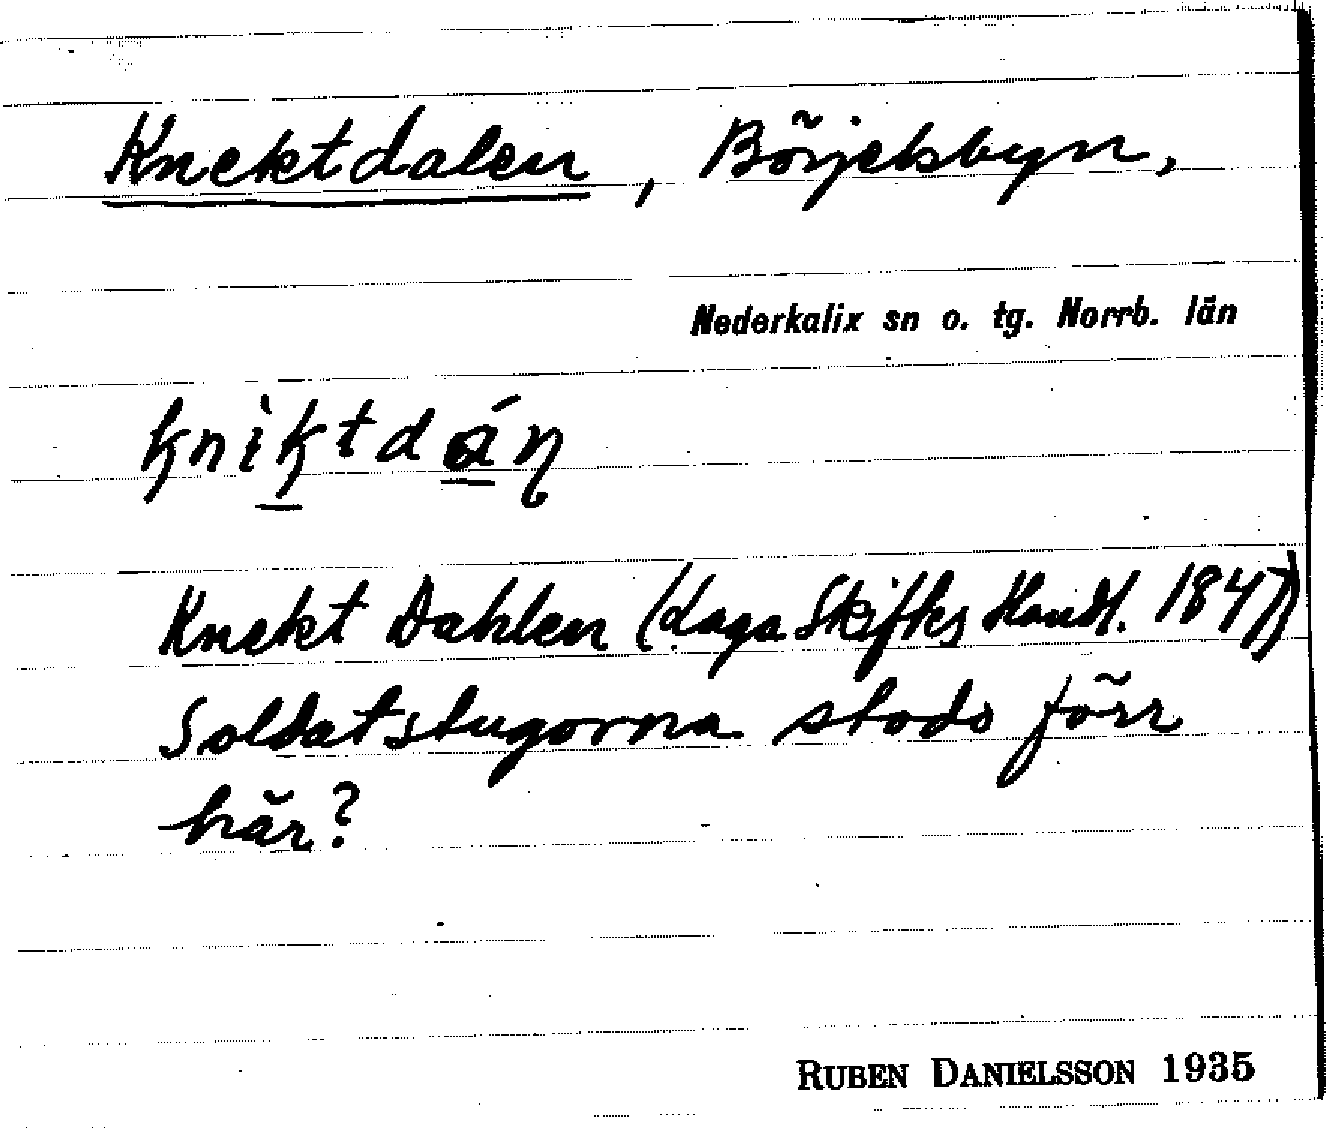 Knektdalen, Börjelsbyn,
Nederkalix sn o. tg. Norrb. län
kniktdán
Knekt Dahlen (Laga Skiftes Handl. 1847)
Soldatstugorna stodo förr
här?
RUBEN DANIELSSON 1935